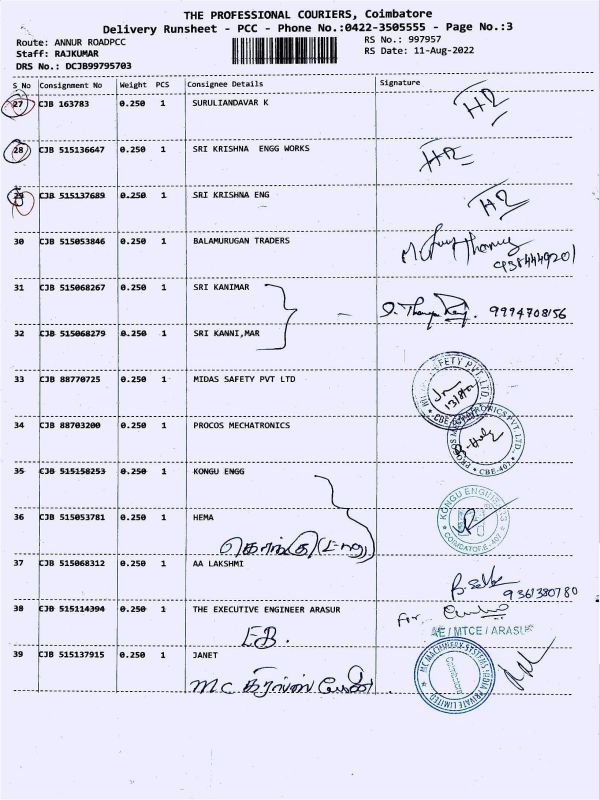 THE PROFESSIONAL COURIERS, Coimbatore
Delivery Runsheet - PCC - Phone No.:0422-3505555 - Page No.:3
Route: ANNUR ROADPCC
Staff: RAJKUMAR
DRS No.: DCJB99795703
RS No.: 997957
RS Date: 11-Aug-2022
S No Consignment No Weight PCS Consignee Details Signature
27 CJB 163783 0.250 1 SURULIANDAVAR K
28 CJB 515136647 0.250 1 SRI KRISHNA ENGG WORKS
29 CJB 515137689 0.250 1 SRI KRISHNA ENG
30 CJB 515053846 0.250 1 BALAMURUGAN TRADERS
31 CJB 515068267 0.250 1 SRI KANIMAR
9994708156
32 CJB 515068279 0.250 1 SRI KANNI,MAR
33 CJB 88770725 0.250 1 MIDAS SAFETY PVT LTD
SAFETY PVT. LTD
34 CJB 88703200 0.250 1 PROCOS MECHATRONICS
PROCOS MECHATRONICS PVT. LTD. CBE-407
35 CJB 515158253 0.250 1 KONGU ENGG
36 CJB 515053781 0.250 1 HEMA
KONGU ENGINEERS
COIMBATORE. 407
கொங்கு (Eng)
37 CJB 515068312 0.250 1 AA LAKSHMI
9361380780
38 CJB 515114394 0.250 1 THE EXECUTIVE ENGINEER ARASUR
For
EB.
AE / MTCE / ARASUR
39 CJB 515137915 0.250 1 JANET
MC MACHINERY SYSTEMS INDIA PRIVATE LIMITED
Coimbatore
MC